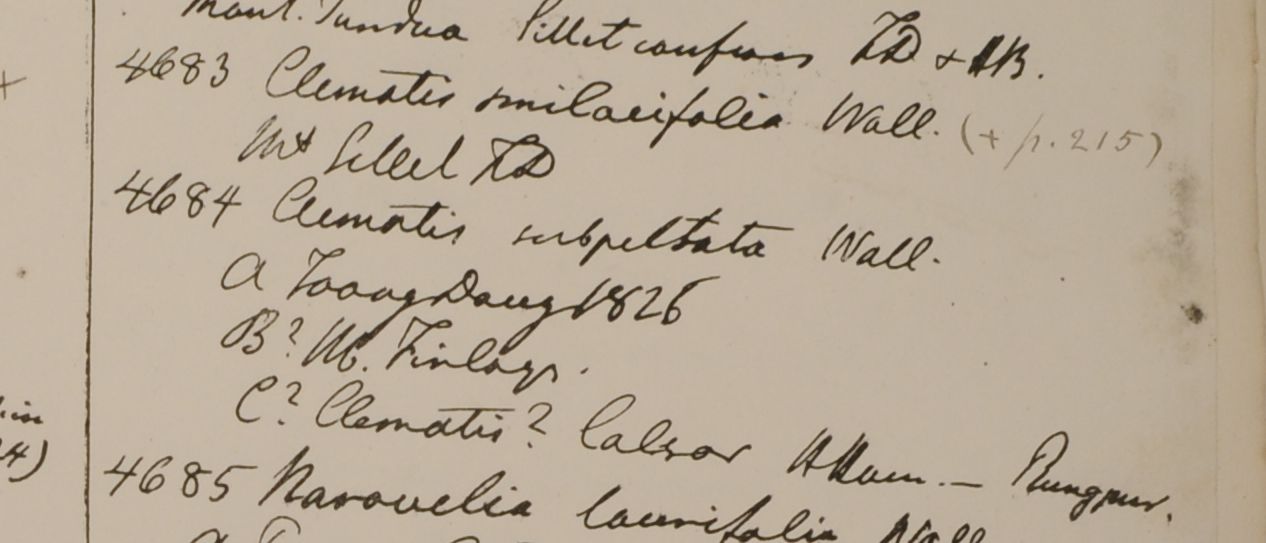 Mont. Sillet confines FD & HB.
4683 Clematis smilacifolia Wall. (+ p. 215)
Mt Sillet FD
4684 Clematis subpeltata Wall.
A Toong Dong 1826
B? M. Finlays.
C? Clematis? HHam. — Rungpur.
4685 Naravelia laurifolia Wall